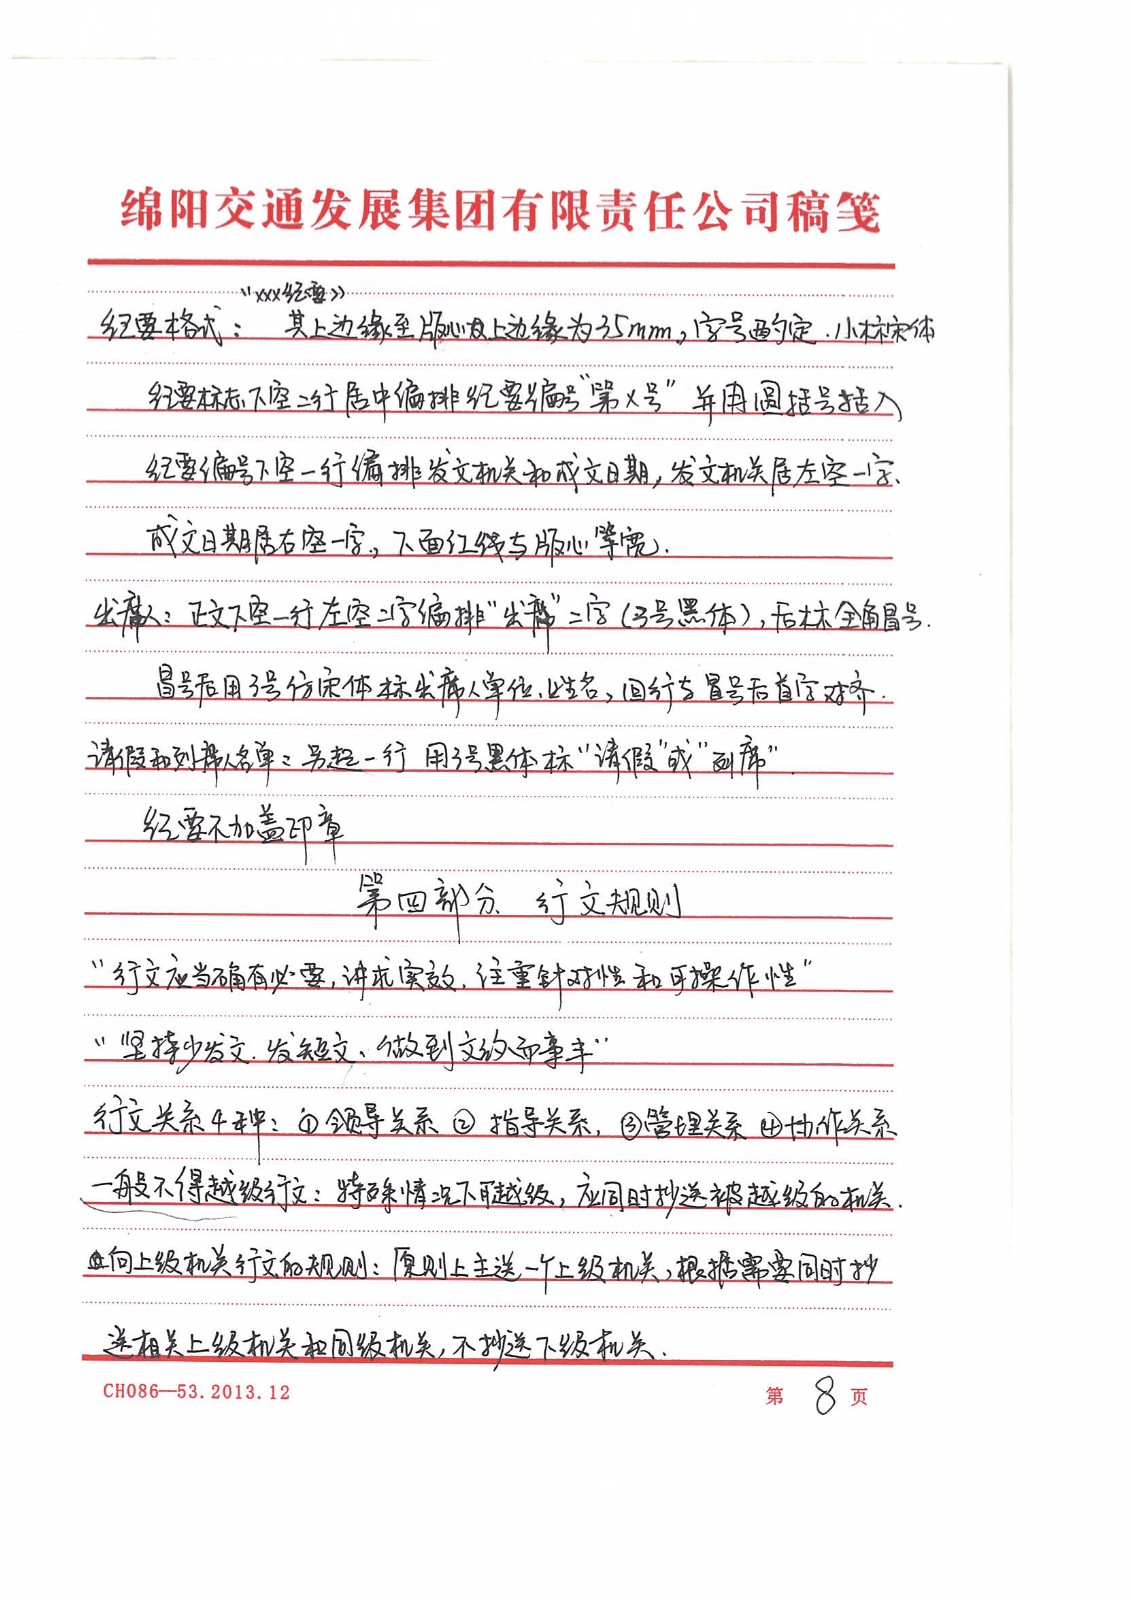 绵阳交通发展集团有限责任公司稿笺
“xxx纪要》
纪要格式： 其上边缘至版心上边缘为35mm，字号酌定．小标宋体
纪要标志下空二行居中编排纪要编号“第X号”并用圆括号括入
纪要编号下空一行编排发文机关和成文日期，发文机关居左空一字、
成文日期居右空一字，下面红线与版心等宽．
出席人：正文下空一行左空二字编排“出席”二字（3号黑体），后标全角冒号．
冒号后用3号仿宋体标出席人单位、姓名，回行与冒号后首字对齐．
请假和列席人名单：另起一行 用3号黑体标“请假”或“列席”
纪要不加盖印章
第四部分 行文规则
“行文应当确有必要，讲求实效．注重针对性和可操作性”
“坚持少发文．发短文、做到文约而事丰”
行文关系4种：①领导关系 ② 指导关系，③管理关系 ④协作关系
一般不得越级行文：特殊情况下可越级，应同时抄送被越级的机关．
向上级机关行文的规则：原则上主送一个上级机关，根据需要同时抄
送相关上级机关和同级机关，不抄送下级机关．
CH086—53.2013.12
第 8 页